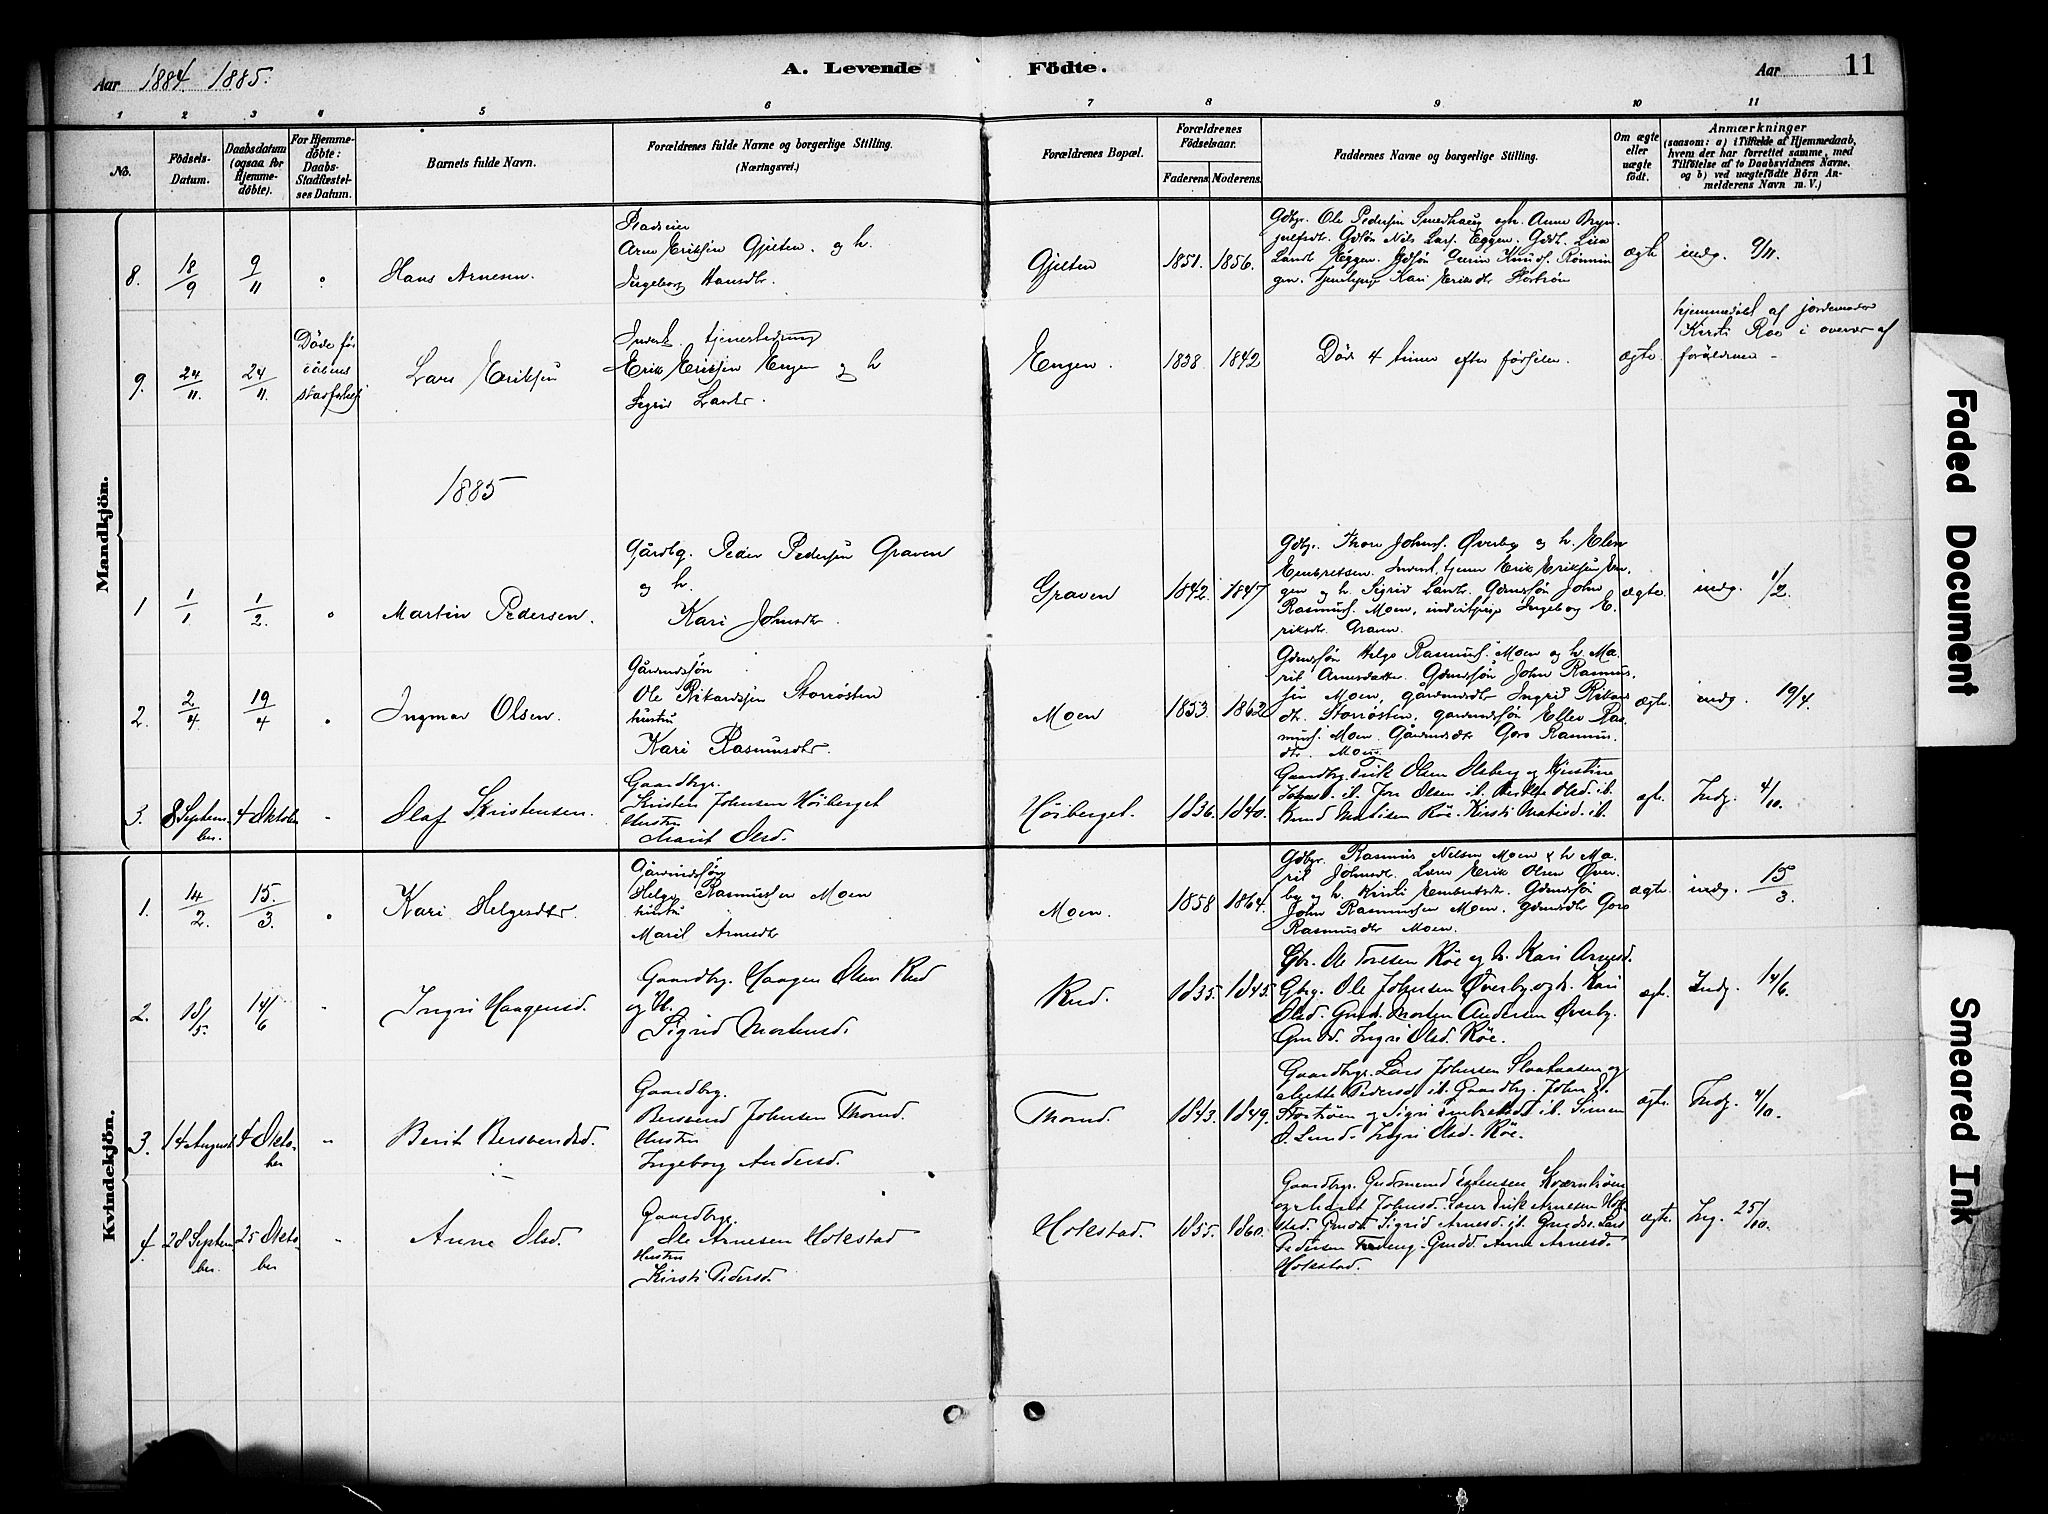 Aar 1884. 1885.
A. Levende Födte.
Aar 11
1 2 3 4 5 6 7 8 9 10 11
No.
Födsels-Datum.
Daabsdatum (ogsaa for Hjemmedöbte).
For Hjemmedöbte: Daabs-Stadfæstelses Datum.
Barnets fulde Navn.
Forældrenes fulde Navne og borgerlige Stilling. (Næringsvei.)
Forældrenes Bopæl.
Forældrenes Födselsaar.
Faderens. Moderens.
Faddernes Navne og borgerlige Stilling.
Om ægte eller uægte födt.
Anmærkninger (saasom: a) i Tilfælde af Hjemmedaab, hvem der har forrettet samme, med Tilföielse af to Daabsvidners Navne, og b) ved uægtefödte Börn Anmelderens Navn m. V.)
Mandkjön.
8. 18/9 9/11 Hans Arnesen.
Arne Eriksen Gjelten. og h.
Ingeborg Hansdtr.
Gjelten 1851. 1856.
Gdbgr. Ole Pedersen Smedhaug og h. Anne
ægte indg. 9/11.
9. 24/11. 24/11. Döde för Lars Eriksen
Erik Eriksen Engen og h
Sigrid Larsdtr.
Engen. 1838. 1842
Döde 4 timer efter födselen.
ægte.
hjemmedöbt af jordemoder
Kirsti Roe i overvær af
forældrene -
1885
1 1/1. 1/2. Martin Pedersen.
Gårdbg. Peder Pedersen Graven
og h.
Kari Johnsdtr.
Graven 1842. 1847
Gdbgr. Thore Johns. Øverby og h. Elen
Embretsen. Inderst, tjener Erik Eriksen En-
gen og h. Sigrid Larsdtr. Gdmdsøn John
Rasmus. Moen, Ingeborg E-
riksdtr. Graven.
ægte. indg. 1/2.
2. 2/4. 19/4 Ingmar Olsen.
Gårdmdssøn
Ole Rikardsen Storrøsten
hustru
Kari Rasmusdtr.
Moen 1853. 1862
Gdmdsøn Helge Rasmus. Moen og h. Ma-
rit Arnesdatter. Gdmdsøn John Rasmus-
sen Moen, gårdmdsdtr Ingrid Rikards
dtr. Storrøsten, gårdmdsøn Ellev Ras-
mus. Moen. Gårdmdsdtr Goro Rasmus-
dtr. Moen.
ægte. indg. 19/4
3. 8 Septem-
ber. 4 Oktober " Olaf Kristensen.
Gaardbgr.
Kristen Johnsen Höiberget
Hustru
Marit Olsd.
Höiberget. 1836. 1840.
Gaardbg. Erik Olsen og Kjerstine
Johnsd. ib. Jon Olsen ib. Olsd. ib.
Knud Matisen Röe. Kirsti Matisd. ib.
ægte. Indg. 4/10.
Kvindekjön.
1. 14/2. 15./3. Kari Helgesdtr.
Gårdmdssøn
Helge Rasmussen Moen
hustru
Marit Arnesdtr
Moen. 1858 1864.
Gdbgr. Rasmus Nelsen Moen & h Ma-
rit Johnsdtr. Erik Olsen Øver-
by og h. Kirsti Embretsdtr. Gdmdssø
John Rasmussen Moen. Gdmdsdtr Goro
Rasmusdtr Moen.
ægte. indg. 15/3.
2. 18/5. 14/6 " Ingri Haagensd.
Gaardbg. Haagen Olsen Rud
og H.
Sigrid Mortensd.
Rud. 1835. 1845.
Gbr. Ole Toresen Röe og h. Kari Arnesd.
Gbrg. Ole Johnsen Øverby og h. Kari
Olsd. Gmd. Morten Andersen Øverby.
Gmdd. Ingri Olsd. Röe.
ægte. Indg. 14/6.
3. 14 August 4 Okto-
ber " Berit Bersvendsd.
Gaardbrg.
Bersvend Johnsen Thorud.
Hustru
Ingeborg Andersd.
Thorud 1843. 1849.
Gaardbgr. Lars Johnsen Slaataasen og
Mette Pedersd. ib. Gaardbg. John E.
Storhöen og Sigri Embretsd. ib. Simen
J. Lund. Ingri Olsd. Röe.
ægte. Indg. 4/10.
4. 28 Septem-
ber. 25 Okto-
ber " Anne Olsd.
Gaardbgr.
Ole Arnesen Hokstad
Hustru
Kirsti Pedersd.
Hokstad. 1855. 1860.
Gaardbgr. Gudmund Estensen Kværnhöen
og Marit Johnsd. Erik Arnesen Hok-
stad. Sigrid Arnesd. ib. Lars
Pedersen Gmdd. Anne Arnesd.
Hokstad.
ægte. Ing. 25/10.
Faded Document
Smeared Ink